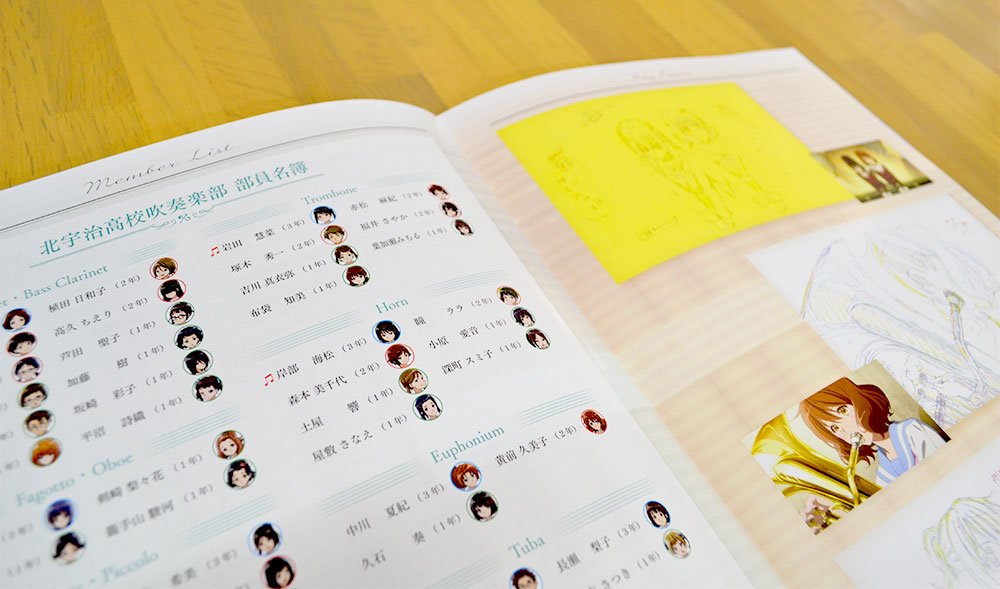 Member List
北宇治高校吹奏楽部 部員名簿
Bass Clarinet
植田 日和子 (2年)
高久 ちえり (2年)
芦田 聖子 (1年)
加藤 樹 (1年)
坂崎 彩子 (1年)
平沼 詩織 (1年)
Fagotto・Oboe
剣崎 梨々花 (1年)
籠手山 駿河 (1年)
Piccolo
希美 (3年)
Trombone
岩田 慧菜 (3年)
塚本 秀一 (2年)
吉川 真衣弥 (1年)
布袋 知美 (1年)
赤松 麻紀 (2年)
福井 さやか (2年)
葉加瀬みちる (1年)
Horn
岸部 海松 (3年)
森本 美千代 (2年)
土屋 響 (1年)
屋敷 さなえ (1年)
瞳 ララ (2年)
小原 愛音 (1年)
深町 スミ子 (1年)
Euphonium
中川 夏紀 (3年)
久石 奏 (1年)
黄前 久美子 (2年)
Tuba
長瀬 梨子 (3年)
さつき (1年)